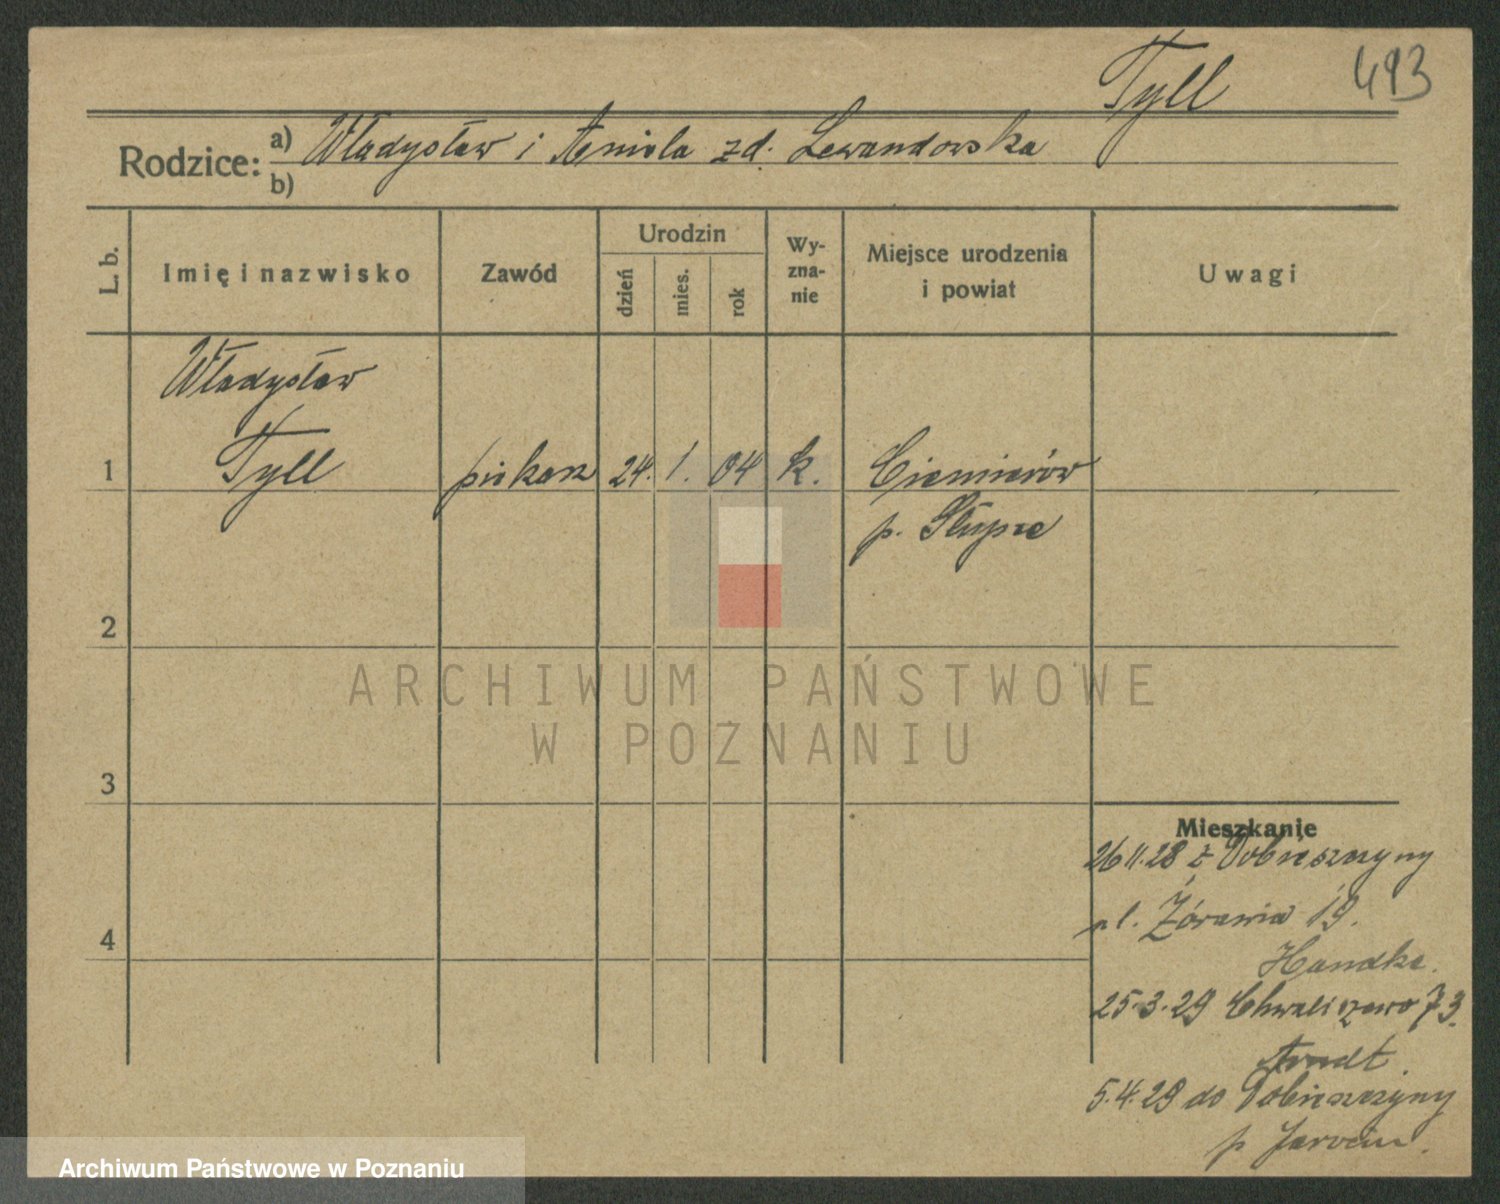 Tyll
493
Rodzice: a) Władysław i Aniela zd. Lewandowska
b)
L. b.
Imię i nazwisko
Zawód
Urodzin
dzień
mies.
rok
Wy-
zna-
nie
Miejsce urodzenia
i powiat
Uwagi
Władysław
1 Tyll piekarz 24. 1. 04 k. Ciemierów
p. Słupce
2
3
4
Mieszkanie
26 11.28 z Dobieszczyny
ul. Żórawia 19.
Handke.
25.3.29 Chwaliszewo 73.
Arndt.
5.4.29 do Dobieszczyny
p. Jarocin.
ARCHIWUM PAŃSTWOWE
W POZNANIU
Archiwum Państwowe w Poznaniu